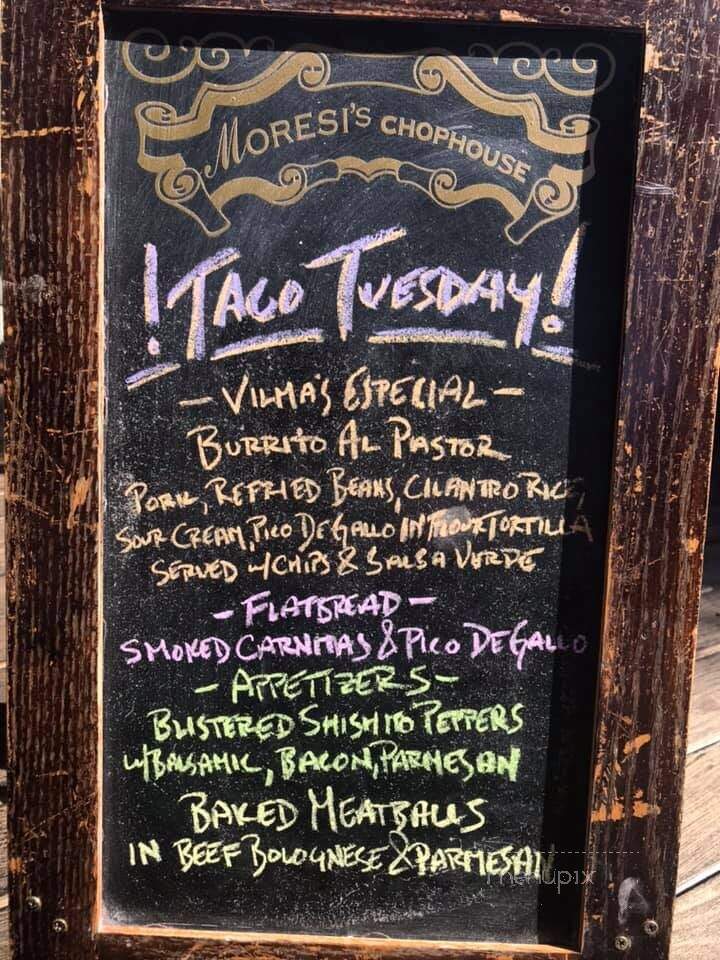 MORESI'S CHOPHOUSE
! TACO TUESDAY !
- VILMA'S ESPECIAL -
BURRITO AL PASTOR
PORK, REFRIED BEANS, CILANTRO RICE,
SOUR CREAM, PICO DE GALLO IN FLOUR TORTILLA
SERVED W/ CHIPS & SALSA VERDE
- FLATBREAD -
SMOKED CARNITAS & PICO DE GALLO
- APPETIZERS -
BLISTERED SHISHITO PEPPERS
W/ BALSAMIC, BACON, PARMESAN
BAKED MEATBALLS
IN BEEF BOLOGNESE & PARMESAN
menupix